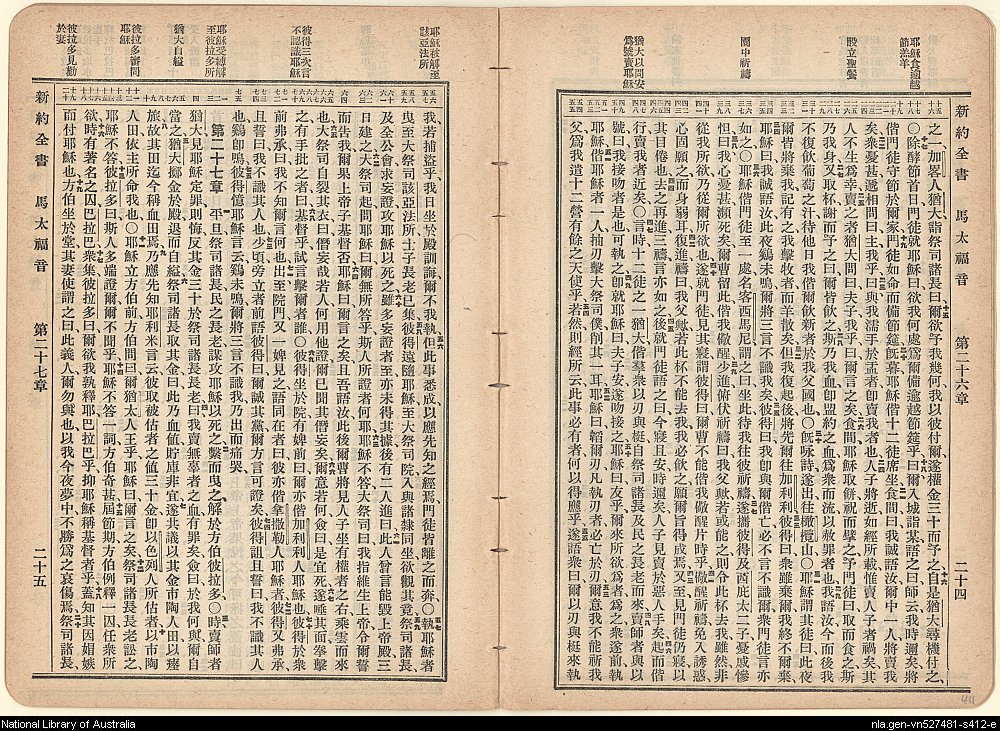 新約全書 馬太福音 第二十六章 二十四
耶穌食逾越
節羔羊
設立聖餐
園中祈禱
猶大以問安
爲號賣耶穌
之一加畧人猶大詣祭司諸長曰爾欲予我幾何我以彼付爾遂權金三十而予之自是猶大尋機付之
〇除酵節首日門徒就耶穌曰欲我何處爲爾備逾越節筵乎曰爾入城詣某語之曰師云我時邇矣將
偕門徒守節於爾家門徒如命而備節筵旣暮耶穌偕十二徒席坐食間曰我誠語汝爾中一人將賣我
矣衆憂甚遞相問曰主我乎曰與我濡手於盂者卽賣我者也人子將逝如經所載惟賣人子者禍矣其
人不生爲幸賣之者猶大問曰夫子我乎曰爾言之矣食間耶穌取餅祝而擘之予門徒曰取而食之斯
乃我身又取杯謝而予之曰爾皆飮之斯乃我血卽盟約之血爲衆而流以赦罪者也我語汝今而後我
不復飮葡萄之汁待他日我偕爾飮新者於我父國也〇旣咏詩遂出往橄欖山〇耶穌謂其徒曰此夜
爾皆將棄我記有之我擊牧者而羊散矣但我復起後將先爾往加利利彼得曰衆雖棄爾我終不爾棄
耶穌曰我誠語汝此夜鷄未鳴爾將三言不識我矣彼得曰我卽與爾偕亡必不言不識爾衆門徒言亦
如之〇耶穌偕門徒至一處名客西馬尼謂之曰坐此待我往彼祈禱遂攜彼得及西庇太二子憂戚慘
怛曰我心憂甚瀕死矣爾曹留此偕我儆醒少進俯伏祈禱曰我父歟若或能之則令此杯去我雖然非
從我所欲乃從爾所欲也遂就門徒見其寢謂彼得曰爾曹不能偕我儆醒片時乎儆醒祈禱免入誘惑
心固願之而身弱耳復進禱曰我父歟若此杯不能去我我必飮之願爾旨得成焉又至見門徒仍寢以
其目倦也去之再進三禱言亦如之後就門徒語之曰今寢且安時邇矣人子見賣於惡人手矣起而偕
行賣我者近矣〇言時十二徒之一猶大偕衆以刃與梃自祭司諸長及民之長老而來賣師者與以
號曰我接吻者是也可執之卽就耶穌曰夫子安遂吻接之耶穌曰友乎爾來所欲爲者爲之衆遂前執
耶穌偕耶穌者一人抽刃擊大祭司僕削其一耳耶穌曰韜爾刃凡執刃者必亡於刃爾意我不能祈我
父爲我遣十二營有餘之天使乎若然則經所云此事必有者何以得應乎遂語衆曰爾以刃與梃來執
耶穌被解至
該亞法所
彼得三次言
不認識耶穌
耶穌受縛解
至彼拉多所
猶大自縊
彼拉多審問
耶穌
彼拉多見勸
於妻
我若捕盜乎我日坐於殿訓誨爾不我執但此事悉成以應先知之經焉門徒皆離之而奔〇執耶穌者
曳至大祭司該亞法所士子長老已集彼得遠隨耶穌至大祭司院入與諸隸同坐欲觀其竟祭司諸長
及全公會求妄證攻耶穌以死之雖多妄證者至亦未得其據後有二人進曰此人曾言能毀上帝殿三
日建之大祭司起問耶穌曰爾無所答乎斯人所證者何耶耶穌不答大祭司曰我指維生上帝令爾誓
而告我爾果上帝子基督否耶穌曰爾言之矣且吾語汝此後爾曹將見人子坐有權者之右乘雲而來
也大祭司自裂其衣曰僭妄哉若人何用他證爾已聞其僭妄矣爾意若何僉曰是宜死遂唾其面拳擊
之有手批之者曰基督乎試言擊爾者誰〇彼得坐於院有婢前曰爾亦偕加利利人耶穌也彼得於衆
前弗承曰我不知爾言何也出至院門又一婢見之語同在者曰彼亦偕拿撒勒人耶穌者彼得又弗承
且誓曰我不識其人也少頃旁立者前語彼得曰爾誠其黨爾方言可證矣彼得詛且誓曰我不識其人
也鷄卽鳴彼得憶耶穌言云鷄未鳴爾將三言不識我乃出而痛哭
第二十七章 平旦祭司諸長民之長老謀攻耶穌以死之繫而曳之解於方伯彼拉多〇時賣師者
猶大見耶穌定罪則悔反其金三十於祭司諸長長老曰我賣無辜者之血有罪矣僉曰於我何與爾自
當之猶大擲金於殿退而自縊祭司諸長取其金曰此乃血値貯庫非宜遂共議以其金市陶人田以瘞
旅故其田迄今稱血田焉乃應先知耶利米言云彼取被估者之値三十金卽以色列人所估者以市陶
人田依主所命我也〇耶穌立方伯前方伯問曰爾猶太人王乎耶穌曰爾言之矣祭司諸長長老訟之
耶穌不答彼拉多曰斯人多端證爾爾不聞乎耶穌不答一詞方伯奇甚屆節期方伯例釋一囚任衆所
欲時有著名之囚巴拉巴衆集彼拉多曰爾欲我孰釋耶巴拉巴乎抑耶穌稱基督者乎蓋知其因媢嫉
而付耶穌也方伯坐於堂其妻使謂之曰此義人爾勿與也以我今夜夢中不勝爲之哀傷焉祭司諸長
新約全書 馬太福音 第二十七章 二十五
National Library of Australia
nla.gen-vn527481-s412-e